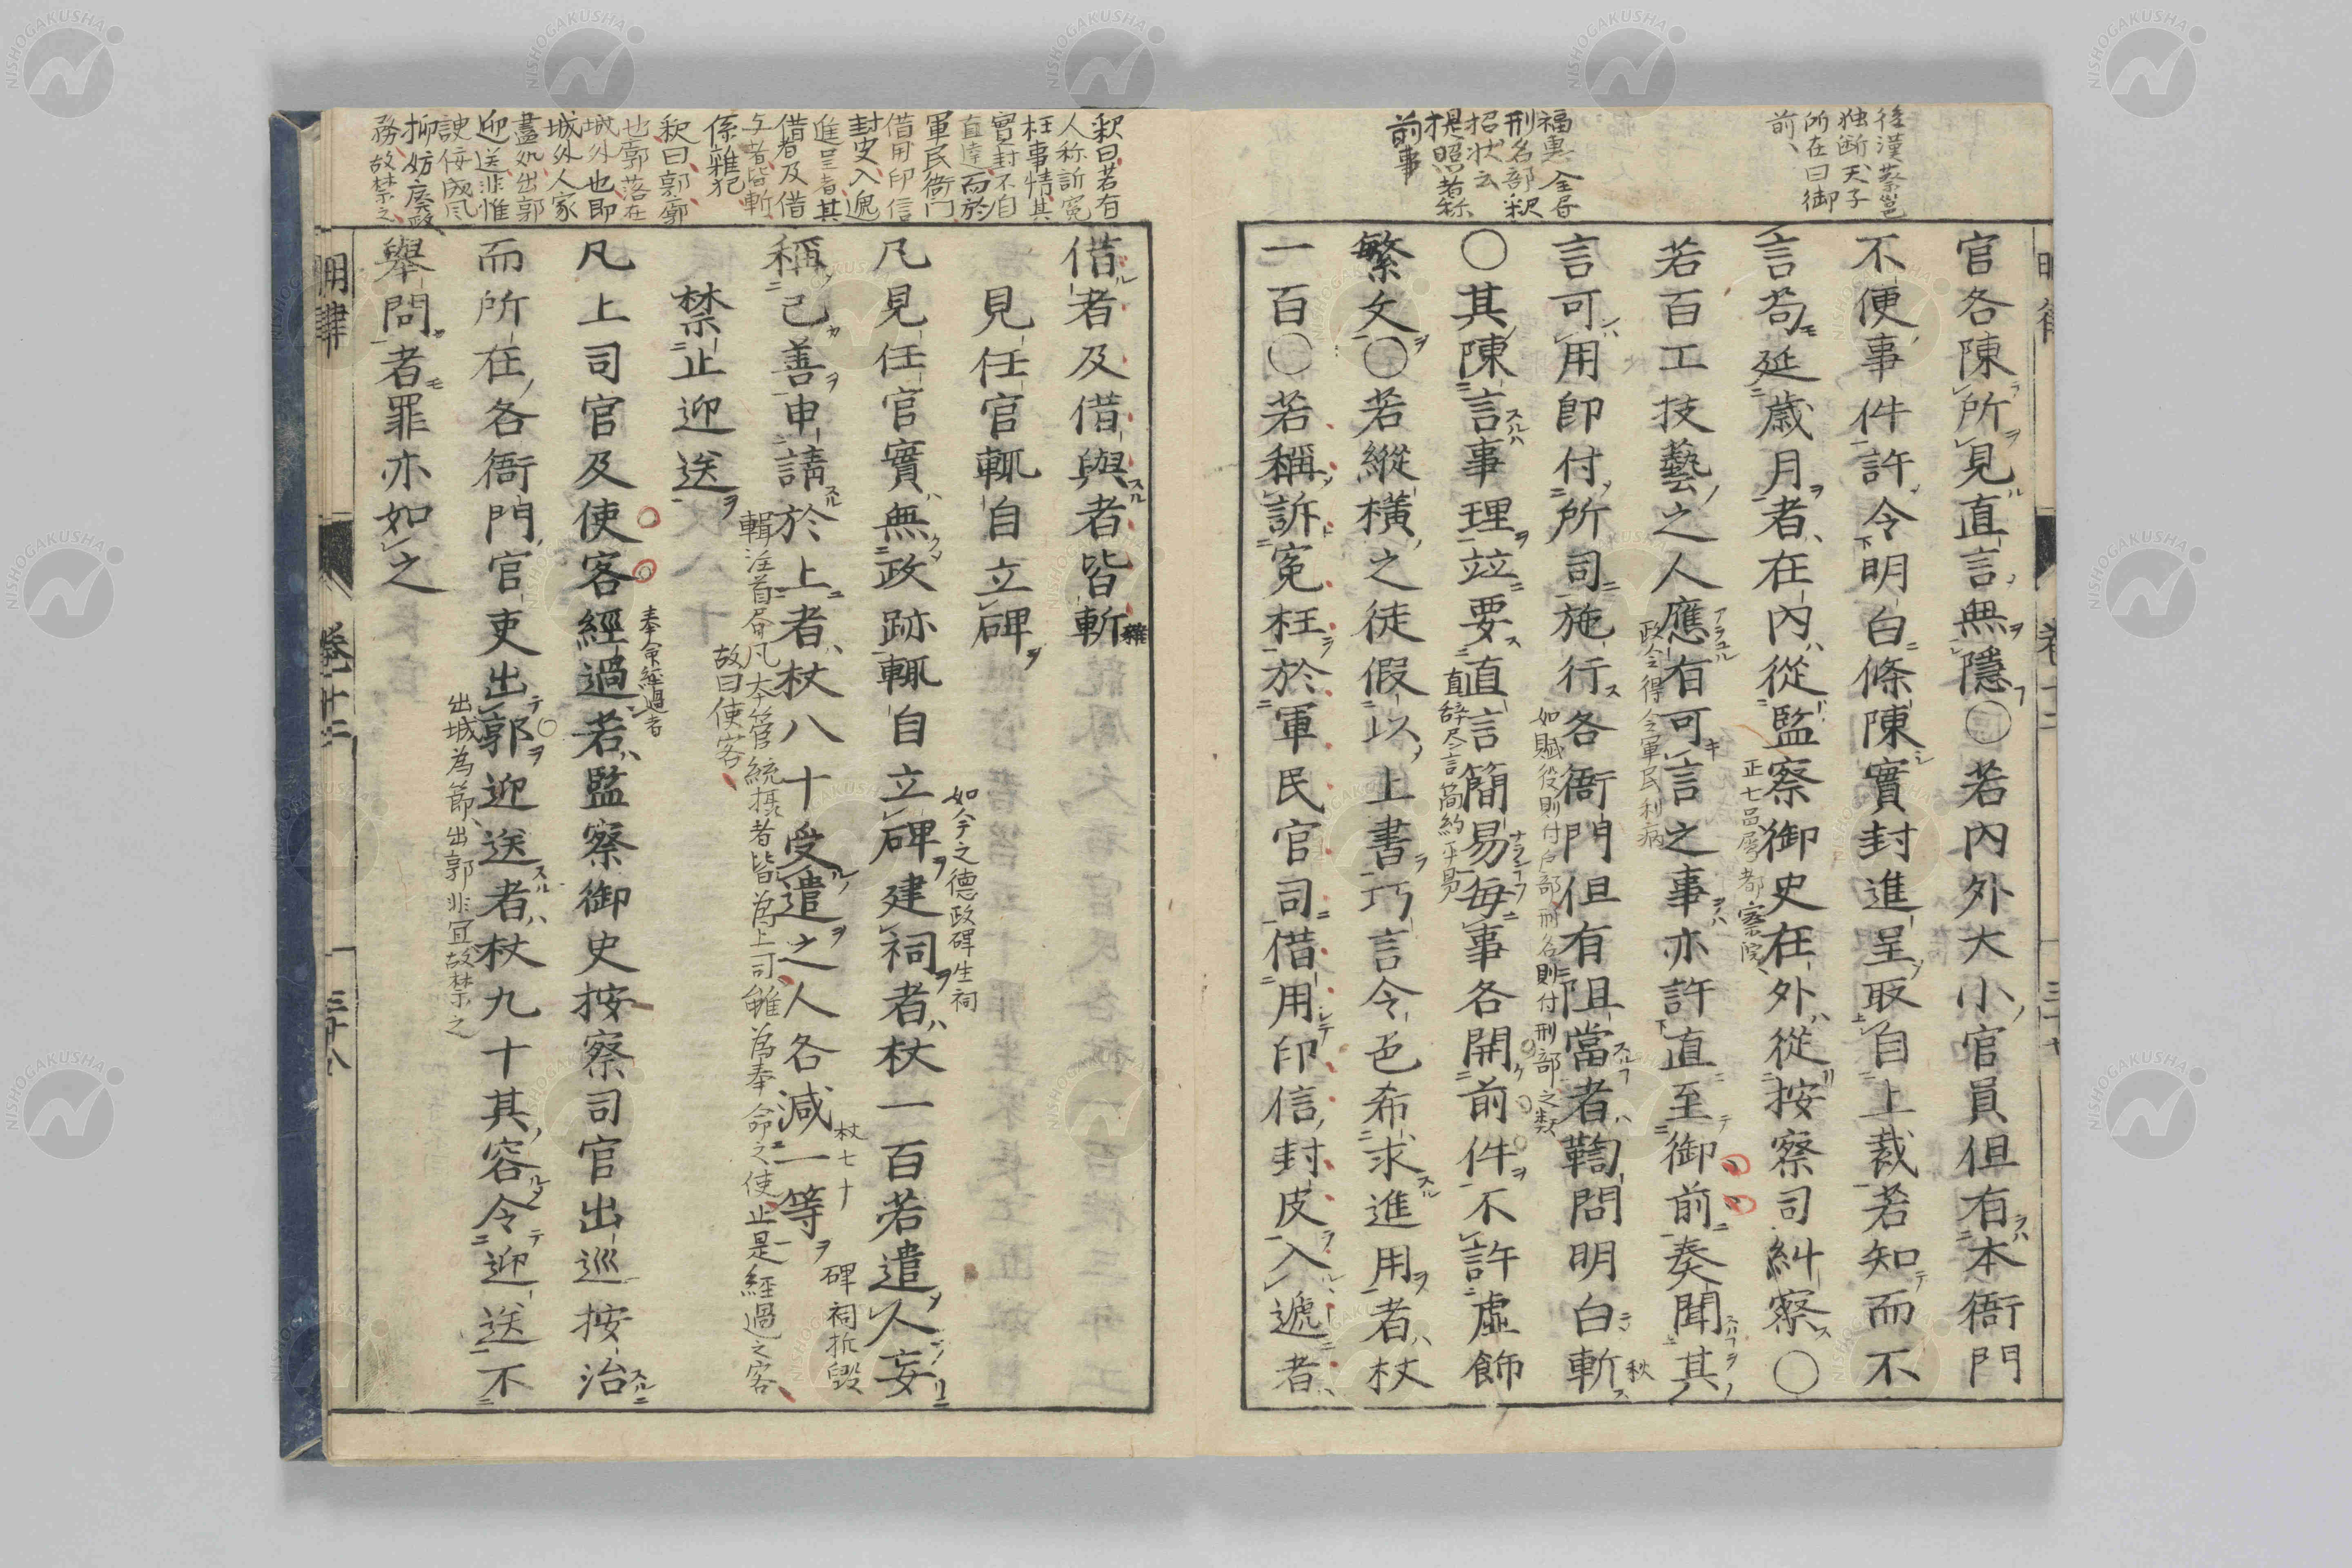 後漢蔡邕
独断天子
所在曰御
前、
福惠全君
刑名部釈
招状云
提照若称
前事
官各陳所見直言無隱〇若內外大小官員但有本衙門
不便事件許令明白條陳實封進呈取自上裁若知而不
言苟延歲月者在內從監察御史在外從按察司糾察〇
正七品屬都察院
若百工技藝之人應有可言之事亦許直至御前奏聞其
政令得令軍民利病
言可用卽付所司施行各衙門但有阻當者鞫問明白斬
如賦役則付戶部刑名則付刑部之類
秋
〇其陳言事理竝要直言簡易每事各開前件不許虛飾
直辞尽言簡約平易
繁文〇若縱橫之徒假以上書巧言令色希求進用者杖
一百〇若稱訴冤枉於軍民官司借用印信封皮入遞者
釈曰若有
人称訴冤
枉事情其
實封不自
直達而於
軍民衙門
借用印信
封皮入遞
進呈者其
借者及借
与者皆斬
係雜犯
釈曰郭廓
也廓落在
城外也即
城外人家
盡処出郭
迎送非惟
諛佞成風
抑妨廃政
務故禁之
借者及借與者皆斬
雜
見任官輒自立碑
凡見任官實無政跡輒自立碑建祠者杖一百若遣人妄
如今之德政碑生祠
碑祠拆毀
稱己善申請於上者杖八十受遣之人各减一等
杖七十
禁止迎送
輯注首节凡本管統摂者皆為上司雖為奉命之使止是經過之客
故曰使客
凡上司官及使客經過若監察御史按察司官出巡按治
奉命經過者
而所在各衙門官吏出郭迎送者杖九十其容令迎送不
出城為節出郭非宜故禁之
舉問者罪亦如之
明律
卷十二
三十八